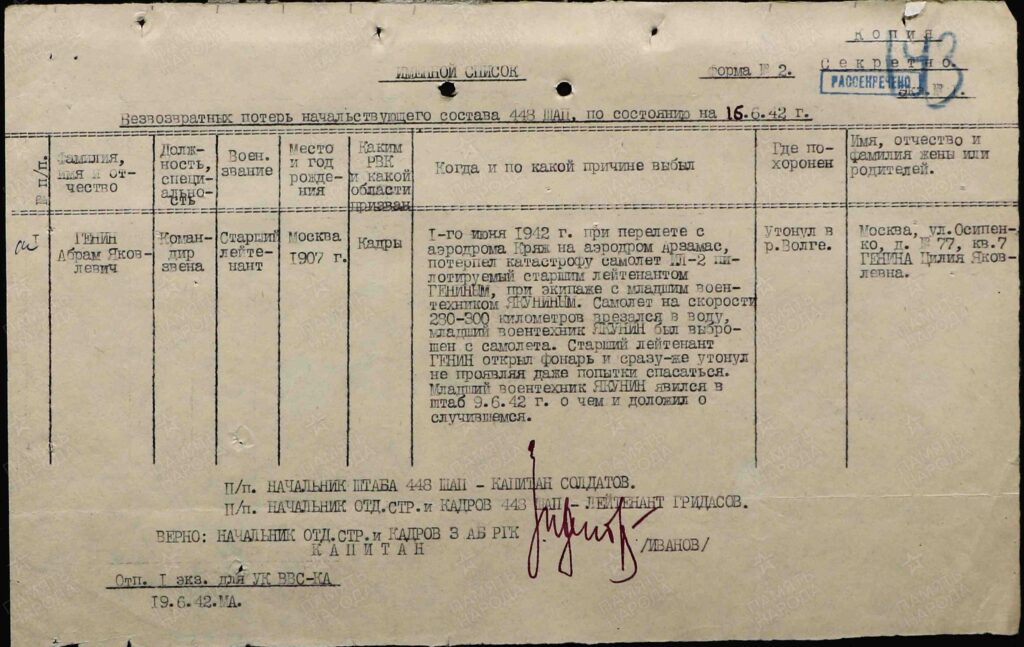 Копия
Секретно
РАССЕКРЕЧЕНО
экз.№
ИМЕННОЙ СПИСОК
Форма № 2.
Безвозвратных потерь начальствующего состава 448 ШАП, по состоянию на 16.6.42 г.
№ п/п.
Фамилия,
имя и от-
чество
Долж-
ность,
специ-
ально-
сть
Воен.
звание
Место
и год
рожде-
ния
Каким
РВК
и какой
области
призван
Когда и по какой причине выбыл
Где по-
хоронен
Имя, отчество и
фамилия жены или
родителей.
I
ГЕНИН
Абрам Яков-
левич
Коман-
дир
звена
Старший
лейте-
нант
Москва
1907 г.
Кадры
I-го июня 1942 г. при перелете с
аэродрома Кряж на аэродром Арзамас,
потерпел катастрофу самолет ИЛ-2 пи-
лотируемый старшим лейтенантом
ГЕНИНЫМ, при экипаже с младшим воен-
техником ЯКУНИНЫМ. Самолет на скорости
280-300 километров врезался в воду,
младший воентехник ЯКУНИН был выбро-
шен с самолета. Старший лейтенант
ГЕНИН открыл фонарь и сразу-же утонул
не проявляя даже попытки спасаться.
Младший воентехник ЯКУНИН явился в
штаб 9.6.42 г. о чем и доложил о
случившемся.
Утонул в
р.Волге.
Москва, ул.Осипен-
ко, д. № 77, кв.7
ГЕНИНА Цилия Яков-
левна.
П/п. НАЧАЛЬНИК ШТАБА 448 ШАП - КАПИТАН СОЛДАТОВ.
П/п. НАЧАЛЬНИК ОТД.СТР.и КАДРОВ 448 ШАП - ЛЕЙТЕНАНТ ГРИДАСОВ.
ВЕРНО: НАЧАЛЬНИК ОТД.СТР.и КАДРОВ 3 АБ РГК
КАПИТАН
/ИВАНОВ/
Отп. I экз. для УК ВВС-КА
19.6.42.МА.